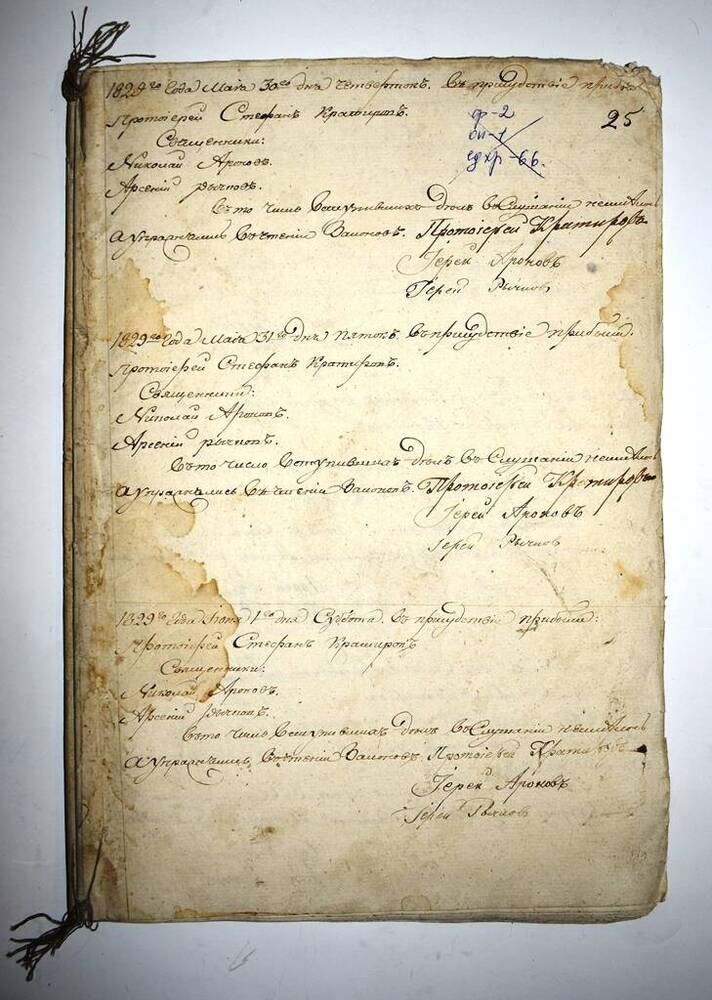 1829го Года Маія 30го дня Четвертокъ. Въ присудствіе прибыли
Протоіерей Стефанъ Кратировъ.
Священники:
Николай Ароновъ.
Арсеній Рычковъ.
ф-2
оп-1
ед хр-66.
25
въ то число вступившихъ дѣлъ въ Слушаніи неимѣлось
а упражнялись въ чтеніи Законовъ. Протоіерей Кратировъ
Іерей Ароновъ
Іерей Рычковъ
1829го Года Маія 31го дня Пятокъ. Въ присудствіе прибыли:
Протоіерей Стефанъ Кратировъ.
Священники:
Николай Ароновъ.
Арсеній Рычковъ.
въ то число вступившихъ дѣлъ въ Слушаніи неимѣлось
а упражнялись въ чтеніи Законовъ. Протоіерей Кратировъ
Іерей Ароновъ
Іерей Рычковъ
1829го Года Іюня 1го дня Субота. Въ присудствіе прибыли:
Протоіерей Стефанъ Кратировъ
Священники:
Николай Ароновъ.
Арсеній Рычковъ.
въ то число вступившихъ дѣлъ въ Слушаніи неимѣлось
а упражнялись въ чтеніи Законовъ. Протоіерей Кратировъ
Іерей Ароновъ
Іерей Рычковъ